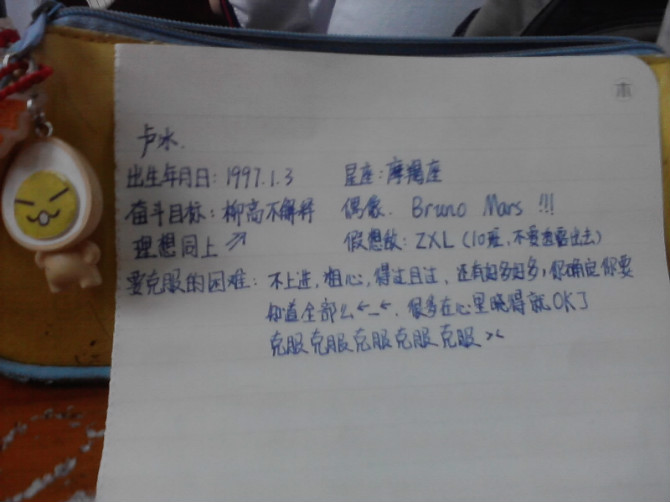 本
卢冰.
出生年月日: 1997.1.3 星座: 摩羯座
奋斗目标: 柳高不解释 偶像. Bruno Mars !!!
理想同上↗ 假想敌: ZXL (10班, 不要透露出去)
要克服的困难: 不上进, 粗心, 得过且过, 还有好多好多, 你确定你要
知道全部么←_←, 很多在心里晓得就OK了
克服克服克服克服克服 ><